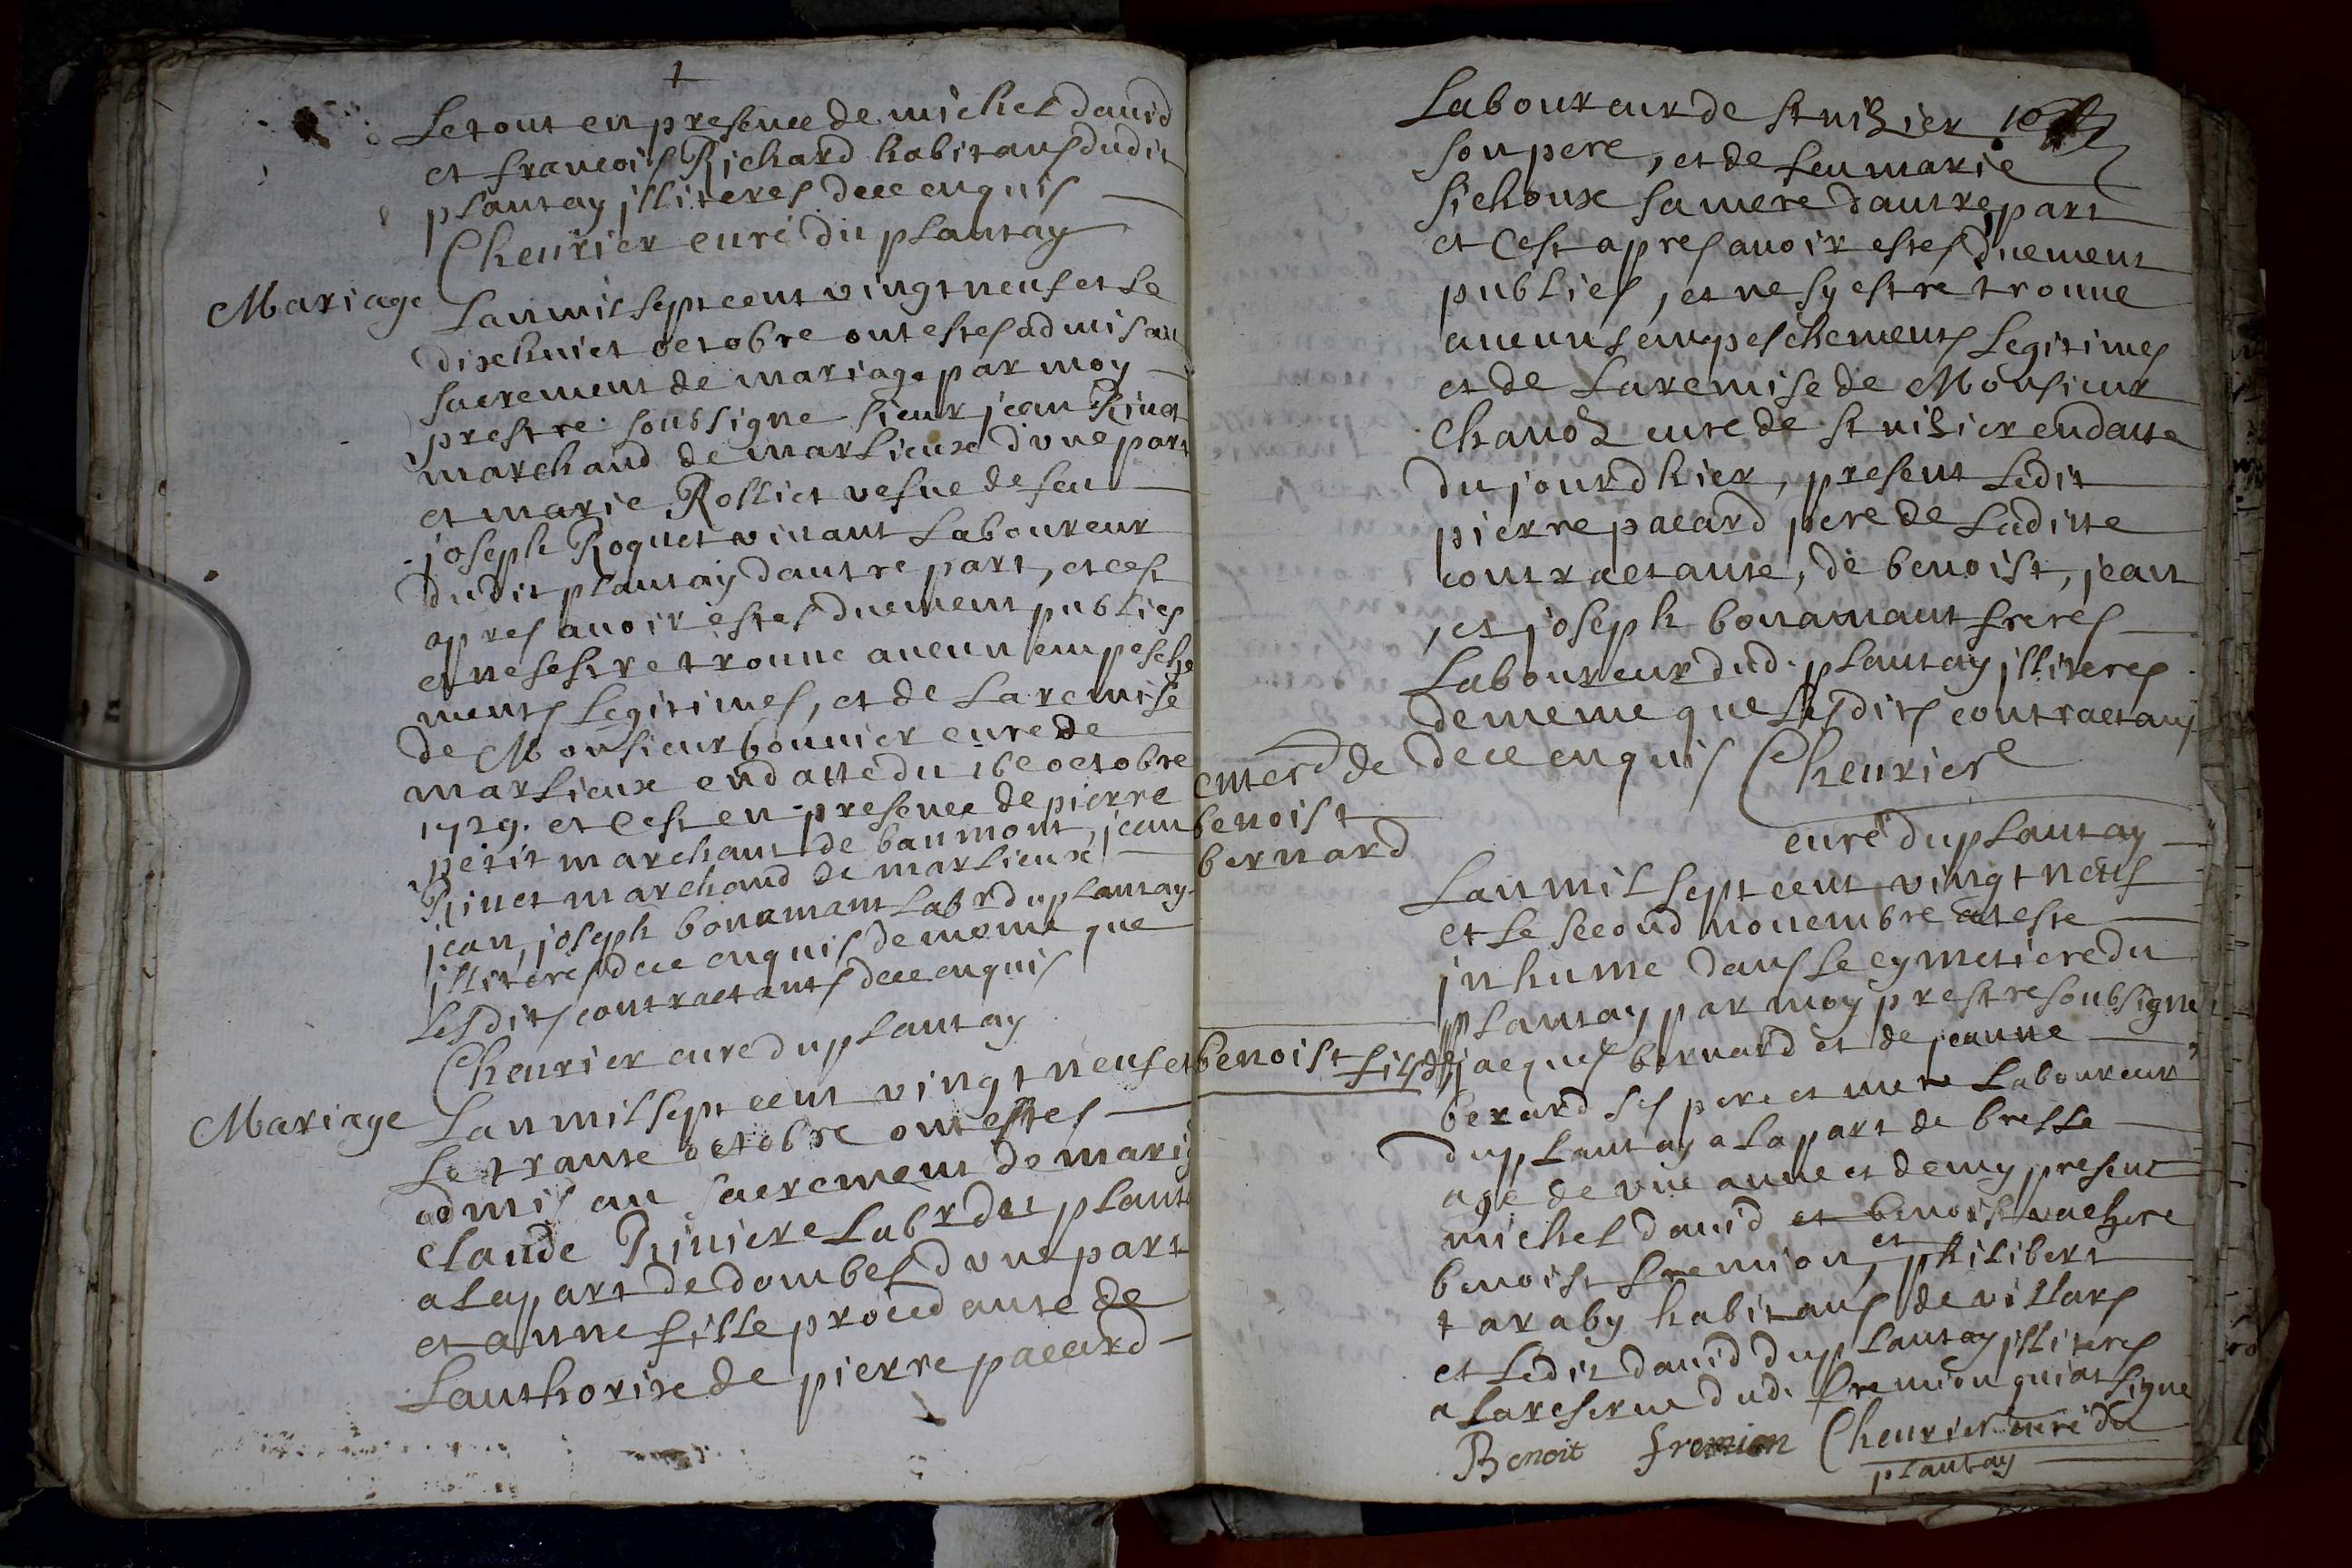 Le tout en presence de michel david
et francois Richard habitans dudit
plantay jlliteres de ce enquis
Cheurier curé du plantay
Mariage
Lan mil sept cent vingt neuf et le
dixehuict octobre ont estes admis au
sacrement de mariage par moy
prestre soubsigne sieur jean Riuet
marchand de marlieux d'vne part
et marie Rolliet vefue de feu
joseph Roquet viuant Laboureur
dudit plantay dautre part, et cest
apres auoir estes duement publies
et ne sestre trouue aucun empesche
ments Legitimes, et de La remise
de Monsieur bonnier cure de
marlieux en datte du 16e octobre
1729. et Cest en presence de pierre
petit marchant de baumont, jean
Riuet marchand de marlieux
jean, joseph bonamant Labr du plantay
jlliteres de ce enquis de meme que
Lesdits contractants de ce enquis
Cheurier cure du plantay
Mariage
Lan mil sept cent vingt neuf et
Le trante octobre ont estes
admis au sacrement de mariag
claude Riuiere Labr du planta
a La part de dombes d vne part
et anne fille procedante de
Lauthorite de pierre pacard
Laboureur de st nizier
son pere, et de feu marie
sichoux sa mere dautre part
et Cest apres auoir estes duement
publies, et ne sy estre trouue
aucuns empeschements Legitimes
et de La remise de Monsieur
Chanoz cure de st nizier en datte
du jourdhier, present Ledit
pierre pacard pere de Laditte
contractante, de benoist, jean
, et joseph bonamant freres
Laboureur dud. plantay jlliteres
de meme que Lesdits contractans
de ce enquis Cheurier
curé du plantay
enterd de
benoist
bernard
Lan mil sept cent vingt neuf
et Le second nouembre at este
jnhume dans Le cymetiere du
plantay par moy prestre soubsigne
benoist fils de jacques bernard et de jeanne
berard ses pere et mere Laboureur
du plantay a La part de bresse
age de vne anne et demy, present
michel david et benoist vachere
benoist fremion, et philibert
taraby habitans de villars
et Ledit david du plantay jlliteres
a La reserue dud. fremion qui at signe
Benoit fremion Cheurier curé du
plantay